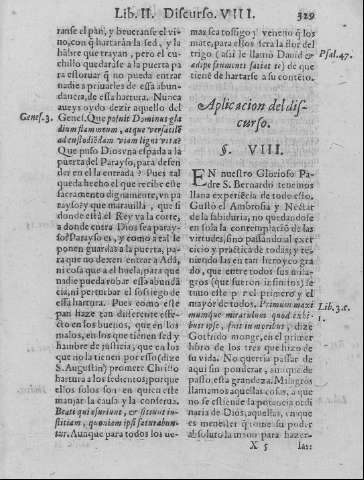 Lib. II. Discurso. VIII.
329
ranse el pan, y beueranse el vi-
no, con q̃ hartarán la sed, y la
hãbre que trayan, pero el cu-
chillo quedarase a la puerta pa
ra estoruar q̃ no pueda entrar
nadie a priuarles de essa abun-
dancia, de essa hartura. Nunca
aueys oydo dezir aquello del
Genes. 3.
Genes. Que posuit Dominus gla
dium flammeum, atque versatilẽ
ad custodiẽdam viam ligni vitæ
Que puso Dios vna espada a la
puerta del Parayso, para defen-
der en el la entrada? Pues tal
queda hecho el que recibe este
sacramento dignamente, vn pa
rayso: y que marauilla, que si
donde está el Rey va la corte,
a donde entra Dios sea paray-
so? Parayso es, y como a tal le
ponen guarda a la puerta, pa-
ra que no dexen entrar a Adã,
ni cosa que a el huela, para que
nadie pueda robar essa abundã
cia, ni perturbar el sossiego de
essa hartura. Pues como este
pan haze tan diferente esse-
cto en los buenos, que en los
malos, en los que tienen sed y
hambre de justicia; que en los
que no la tienen por esso (dize
S. Augustin) promete Christo
hartura a los sedientos; porque
ellos solos son en quien este
manjar la causa y la conserua.
Beati qui esuriunt, & sitiunt iu-
stitiam, quoniam ipsi saturabun-
tur. Aunque para todos los ve-
mas sea tossigo y veneno q̃ los
mate, para ellos será la flor del
trigo (assi le llamó Dauid &
Psal. 47.
adipe frumenti satiat te) de que
tiene de hartarse a su contẽto.
Aplicacion del dis-
curso.
§. VIII.
EN nuestro Glorioso Pa-
dre S. Bernardo tenemos
llana experiẽcia de todo esto,
Gustó el Ambrosia y Néctar
de la sabiduria, no quedandose
en sola la contemplaciõ de las
virtudes, sino passando al exer-
cicio y practica de todas; y te-
niendo las en tan heroyco gra
do, que entre todos sus mila-
gros (que fueron infinitos) se
tuuo este por el primero y el
mayor de todos. Primum maxi
mumque miraculum quod exhi-
Lib. 3. c.
1.
buit ipse, fuit in moribus, dize
Gotfrido monge, en el primer
libro de los tres que hizo de
su vida. No querria passar de
aqui sin ponderar, aunque de
passo, esta grandeza. Milagros
llamamos aquellas cosas, a que
no se estiende la potencia ordi
naria de Dios, aquellas, en que
es menester q̃ tome su poder
absoluto la mano para hazer-
X 5
las: